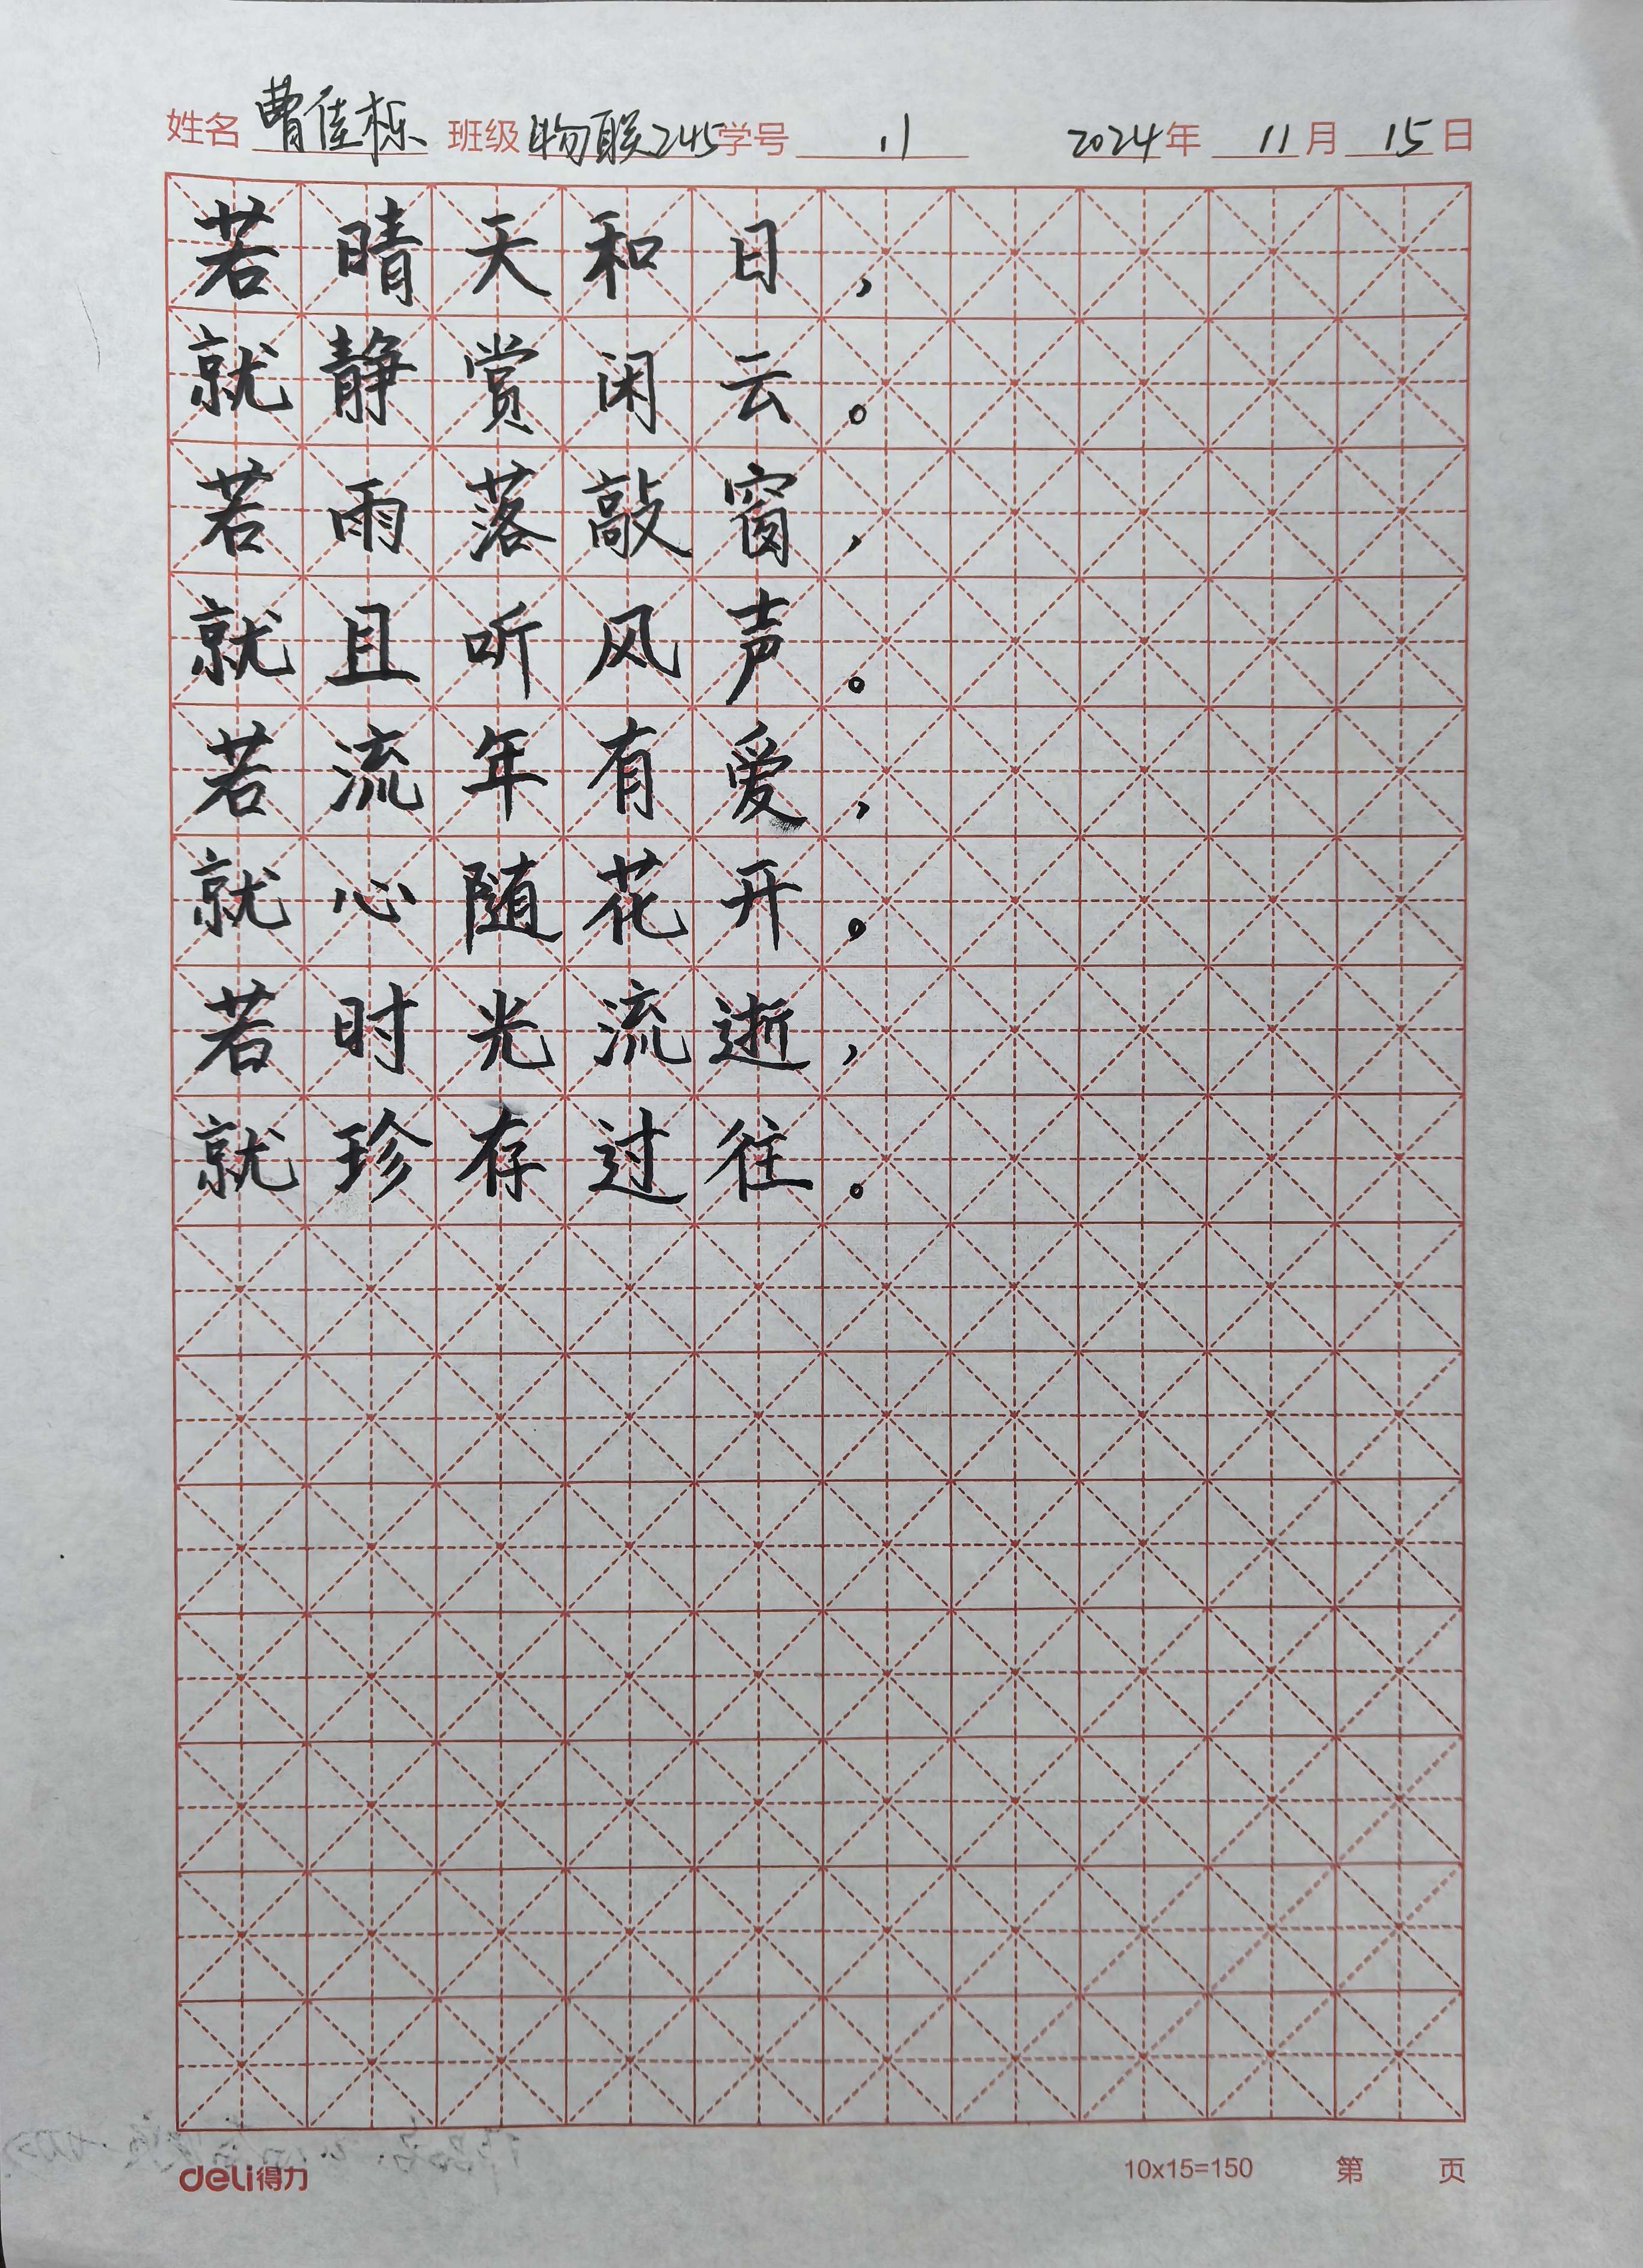 姓名 曹佳栎 班级 物联245 学号 11 2024年 11月 15日
若晴天和日，
就静赏闲云。
若雨落敲窗，
就且听风声。
若流年有爱，
就心随花开。
若时光流逝，
就珍存过往。
deli得力 10x15=150 第 页